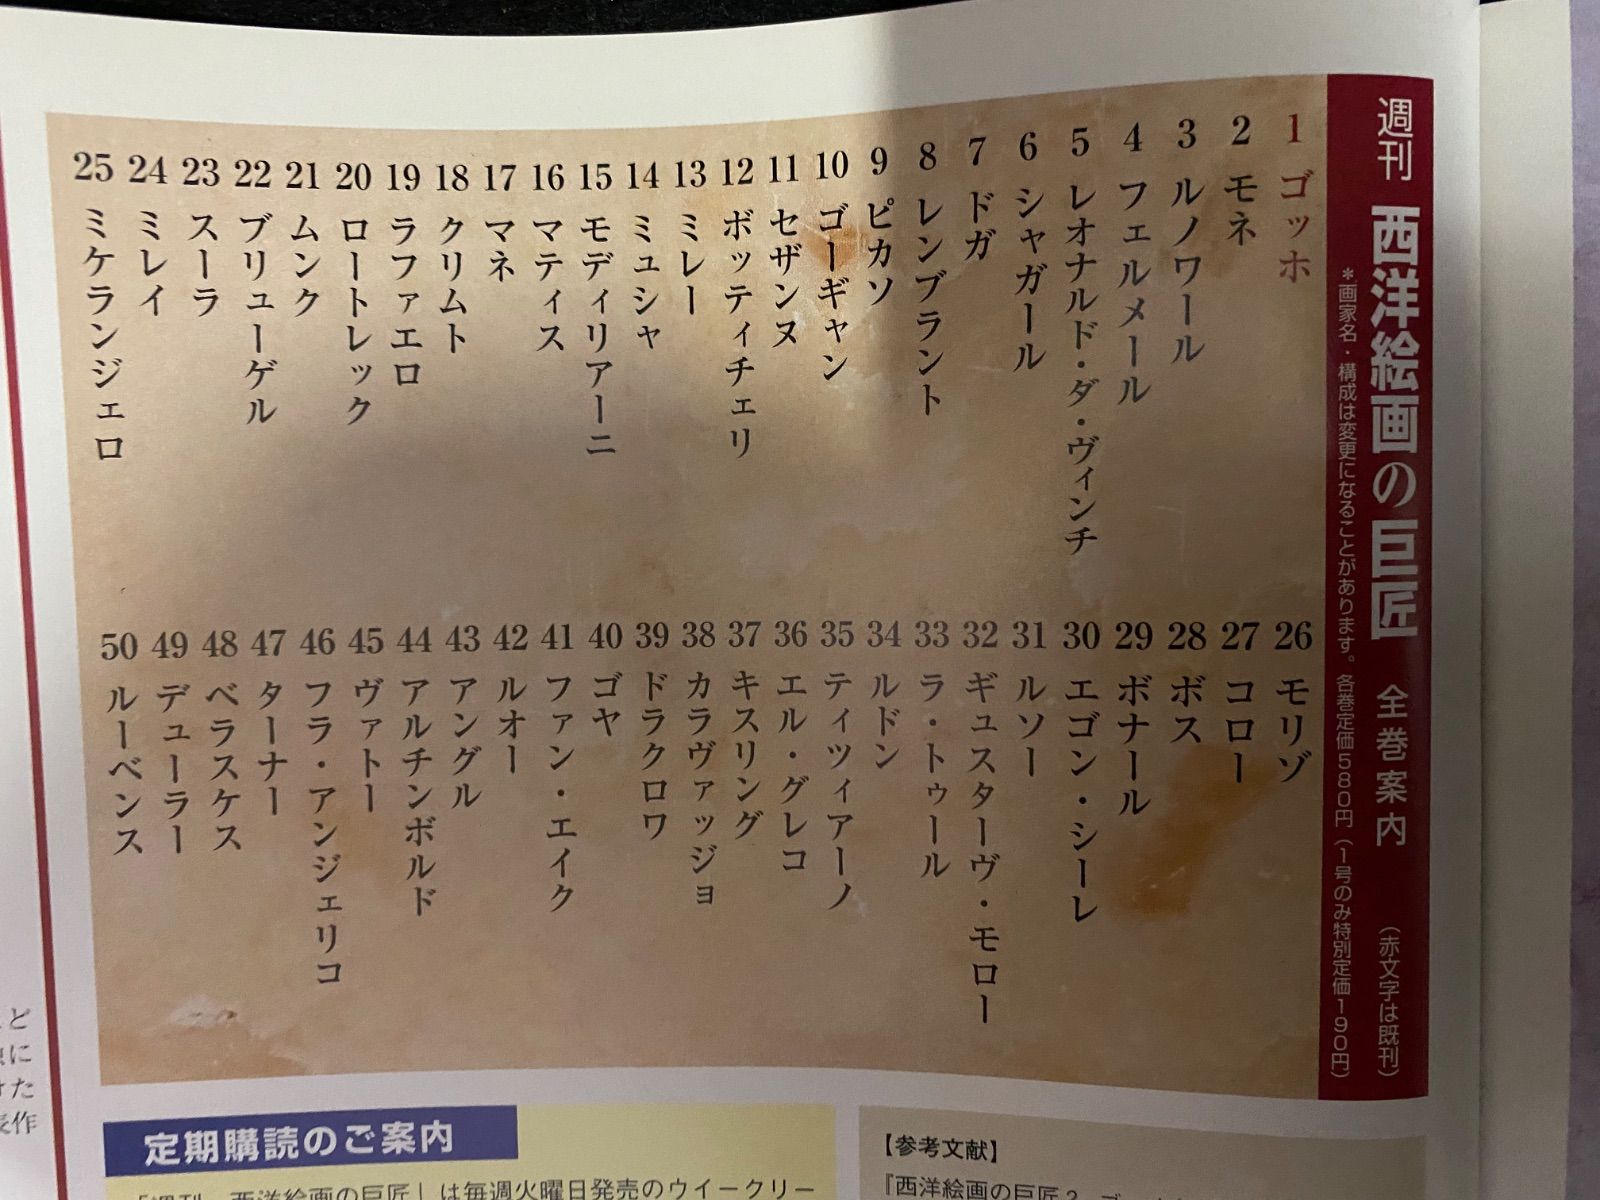 週刊 西洋絵画の巨匠 全巻案内 (赤文字は既刊)
*画家名・構成は変更になることがあります。各巻定価580円(1号のみ特別定価190円)
1 ゴッホ
2 モネ
3 ルノワール
4 フェルメール
5 レオナルド・ダ・ヴィンチ
6 シャガール
7 ドガ
8 レンブラント
9 ピカソ
10 ゴーギャン
11 セザンヌ
12 ボッティチェリ
13 ミレー
14 ミュシャ
15 モディリアーニ
16 マティス
17 マネ
18 クリムト
19 ラファエロ
20 ロートレック
21 ムンク
22 ブリューゲル
23 スーラ
24 ミレイ
25 ミケランジェロ
26 モリゾ
27 コロー
28 ボス
29 ボナール
30 エゴン・シーレ
31 ルソー
32 ギュスターヴ・モロー
33 ラ・トゥール
34 ルドン
35 ティツィアーノ
36 エル・グレコ
37 キスリング
38 カラヴァッジョ
39 ドラクロワ
40 ゴヤ
41 ファン・エイク
42 ルオー
43 アングル
44 アルチンボルド
45 ヴァトー
46 フラ・アンジェリコ
47 ターナー
48 ベラスケス
49 デューラー
50 ルーベンス
ど
に
けた
作
定期購読のご案内
「週刊 西洋絵画の巨匠」は毎週火曜日発売のウイークリー
【参考文献】
『西洋絵画の巨匠2